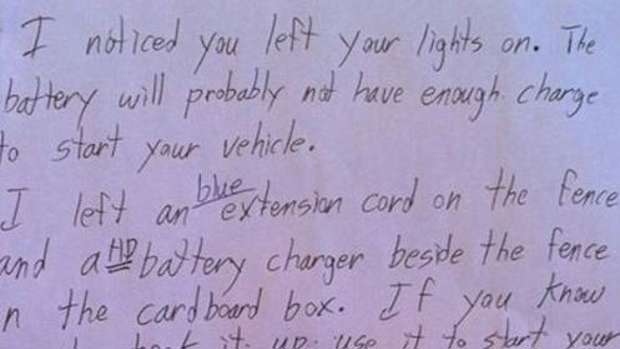 I noticed you left your lights on. The
battery will probably not have enough charge
to start your vehicle.
I left an blue extension cord on the fence
and a HD battery charger beside the fence
n the cardboard box. If you know
hook it up, use it to start your